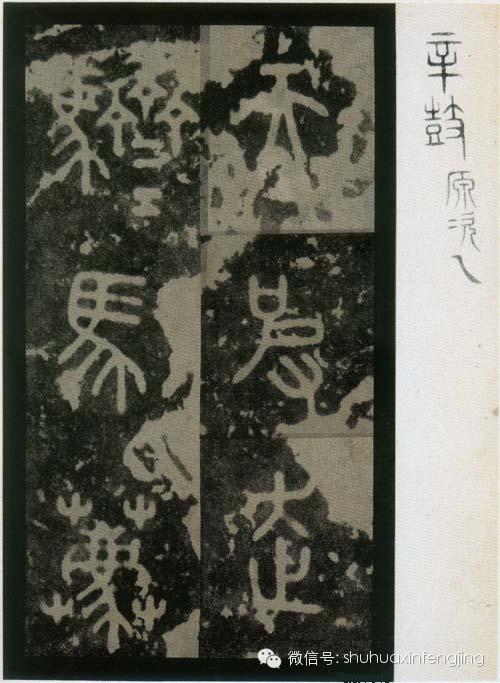 辛鼓 原次八
天皮走
馬薦
微信号: shuhuaxinfengjing